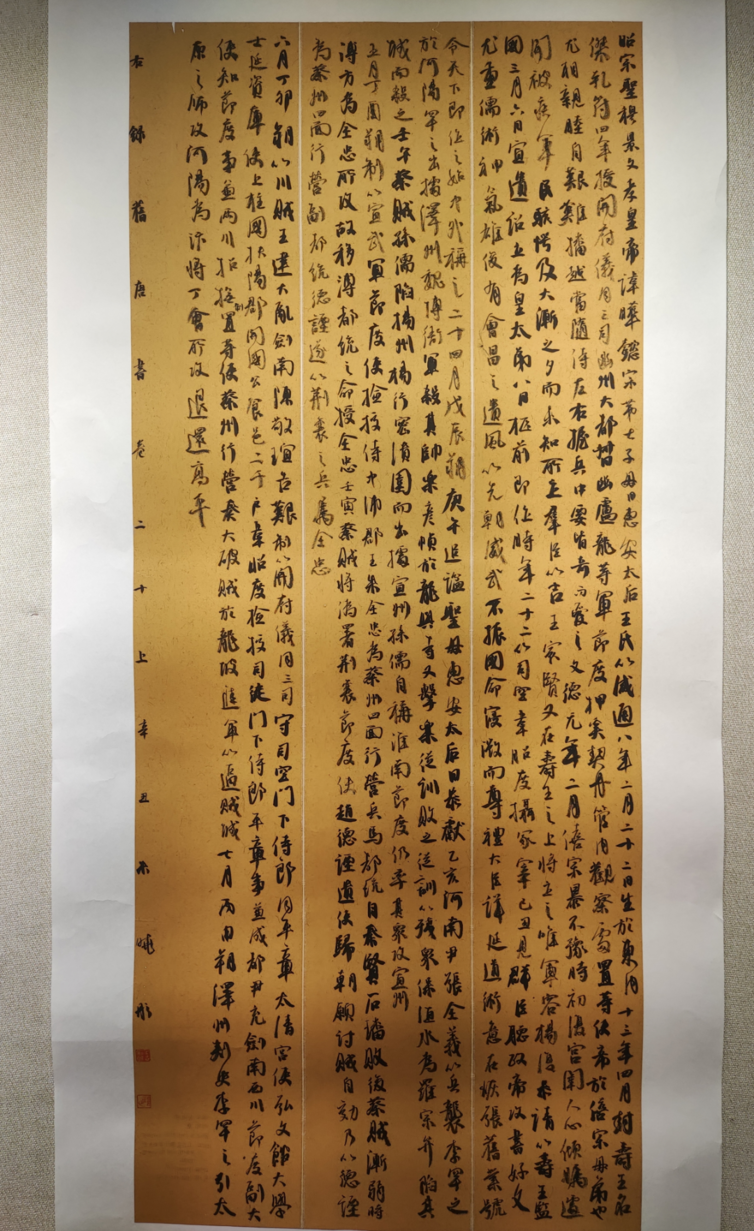 昭宗聖穆景文孝皇帝諱曄懿宗第七子母曰惠安太后王氏以咸通八年二月二十二日生於東內十三年四月封壽王名
傑乾符四年授開府儀同三司幽州大都督幽盧龍等軍節度押奚契丹管內觀察處置等使帝於僖宗母弟也
尤相親睦自艱難播越嘗隨侍左右握兵中要皆奇而愛之文德元年二月僖宗暴不豫時初復宮闈人心傾矚遽
聞被疾軍民駭愕及大漸之夕而未知所立羣臣以吉王最賢又在壽王之上將立之唯軍容楊復恭請以壽王監
國三月六日宣遺詔立為皇太弟八日柩前即位時年二十二以司空韋昭度攝冢宰己丑見羣臣聽政帝攻書好文
尤重儒術神氣雄俊有會昌之遺風以先朝威武不振國命寖微而尊禮大臣詳延道術意在恢張舊業號
令天下即位之始中外稱之二十四月戊辰朔庚午追謚聖母惠安太后曰恭獻乙亥河南尹張全義以兵襲李罕之
於河陽罕之出據澤州魏博衙軍殺其帥樂彥禎於龍興寺又擊樂從訓敗之從訓以殘眾保洹水為羅宗弁陷其
城而殺之壬午蔡賊孫儒陷揚州楊行密潰圍而出據宣州孫儒自稱淮南節度仍率其眾攻宣州
五月丁酉朔制以宣武軍節度使檢校侍中沛郡王朱全忠為蔡州四面行營兵馬都統自秦賢石璠敗後蔡賊漸弱時
溥方為全忠所攻故移溥都統之命授全忠壬寅蔡賊將偽署荊襄節度使趙德諲遣使歸朝願討賊自効乃以德諲
為蔡州四面行營副都統德諲遂以荊襄之兵屬全忠
六月丁卯朔以川賊王建大亂劍南陳敬瑄告難制以開府儀同三司守司空門下侍郎同平章太清宮使弘文館大學
士延資庫使上柱國扶陽郡開國公食邑二千戶韋昭度檢校司徒門下侍郎平章事兼成都尹充劍南西川節度副大
使知節度事兼兩川招撫置等使蔡州行營奏大破賊於龍陂進軍以逼賊城七月丙申朔澤州刺史李罕之引太
原之師攻河陽為汴將丁會所攻退還高平
右錄舊唐書卷二十上辛丑末曉彤